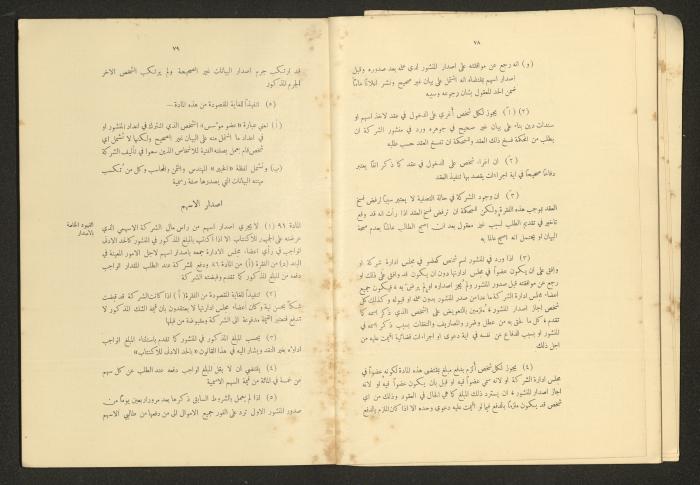 ٧٨
(و) انه رجع عن موافقته على اصدار المنشور لدى علمه بعد صدوره وقبل
اصدار اسهم بمقتضاه انه اشتمل على بيان غير صحيح ونشر اعلاناً عاماً
ضمن الحد المعقول بشأن رجوعه وسببه
(٢) (١) يجوز لكل شخص أغري على الدخول في عقد لاخذ اسهم او
سندات دين بناء على بيان غير صحيح في جوهره ورد في منشور الشركة ان
يطلب من المحكمة فسخ ذلك العقد وللمحكمة ان تفسخ العقد حسب طلبه
(٢) ان اغراء شخص على الدخول في عقد كما ذكر آنفاً يعتبر
دفاعاً صحيحاً في اية اجراءات يقصد بها تنفيذ العقد
(٣) ان وجود الشركة في حالة التصفية لا يعتبر سبباً لرفض فسخ
العقد بموجب هذه الفقرة ولكن للمحكمة ان ترفض فسخ العقد اذا رأت انه قد وقع
تأخير في تقديم الطلب لسبب غير معقول بعد ان اصبح الطالب عالماً بعدم صحة
البيان او يحتمل انه اصبح عالماً به
(٣) اذا ورد في المنشور اسم شخص كعضو في مجلس ادارة شركة او
وافق على ان يكون عضواً في مجلس ادارتها دون ان يكون قد وافق على ذلك او
رجع عن موافقته قبل صدور المنشور ولم يجز اصداره او لم يرض به ، فيكون جميع
اعضاء مجلس ادارة الشركة ما عدا من صدر المنشور بدون علمه او قبوله وكذلك كل
شخص اجاز اصدار المنشور ، ملزمين بالتعويض على الشخص الذي ذكر اسمه كما
تقدم ، كل ما لحق به من عطل وضرر والمصاريف والنفقات بسبب ذكر اسمه في
المنشور او بسبب الدفاع عن نفسه في اية دعوى او اجراءات قضائية اقيمت عليه من
اجل ذلك
(٤) يجوز لكل شخص ألزم بدفع مبلغ بمقتضى هذه المادة لكونه عضواً في
مجلس ادارة الشركة او لانه سمي عضواً فيه او قبل بان يكون عضواً فيه او لانه
اجاز اصدار المنشور ، ان يسترد ذلك المبلغ كما هي الحال في العقود وذلك من اي
شخص قد يكون ملزماً بالدفع فيما لو اقيمت عليه دعوى وحده الا اذا كان الملزم بالدفع
٧٩
قد ارتكب جرم اصدار البيانات غير الصحيحة ولم يرتكب الشخص الاخر
الجرم المذكور
(٥) تنفيذاً للغاية المقصودة من هذه المادة —
(أ) تعني عبارة «عضو مؤسس» الشخص الذي اشترك في اعداد المنشور او
في اعداد ما اشتمل منه على البيان غير الصحيح ولكنها لا تشمل اي
شخص قام بعمل بصفته الفنية للاشخاص الذين سعوا في تأليف الشركة
(ب) وتشمل لفظة «الخبير» المهندس والمثمن والمحاسب وكل من تكسب
مهنته البيانات التي يصدرها صفة رسمية
اصدار الاسهم
القيود الخاصة
بالاصدار
المادة ٩١ (١) لا يجري اصدار اسهم من راس مال الشركة الاسهمي الذي
عرضته على الجمهور للاكتتاب الا اذا اكتتب بالمبلغ المذكور في المنشور كالحد الادنى
الواجب في رأي اعضاء مجلس الادارة جمعه باصدار اسهم لاجل الامور المعينة في
البند (د) من الفقرة (أ) من المادة ٨٦ ودفع للشركة عند الطلب المقدار الواجب
دفعه من المبلغ المذكور كما تقدم وقبضته الشركة
(٢) تنفيذاً للغاية المقصودة من الفقرة (١) اذا كانت الشركة قد قبضت
شكاً بحسن نية وكان اعضاء مجلس ادارتها لا يعتقدون بان قيمة الشك المذكور لا
تدفع فتعتبر القيمة مدفوعة الى الشركة ومقبوضة من قبلها
(٣) يحسب المبلغ المذكور في المنشور كما تقدم باستثناء المبلغ الواجب
اداؤه بغير النقد ويشار اليه في هذا القانون «بالحد الادنى للاكتتاب»
(٤) يقتضي ان لا يقل المبلغ الواجب دفعه عند الطلب عن كل سهم
عن خمسة في المائة من قيمة السهم الاسمية
(٥) اذا لم يعمل بالشروط السابق ذكرها بعد مرور اربعين يوماً من
صدور المنشور الاول ترد على الفور جميع الاموال الى من دفعها من طالبي الاسهم